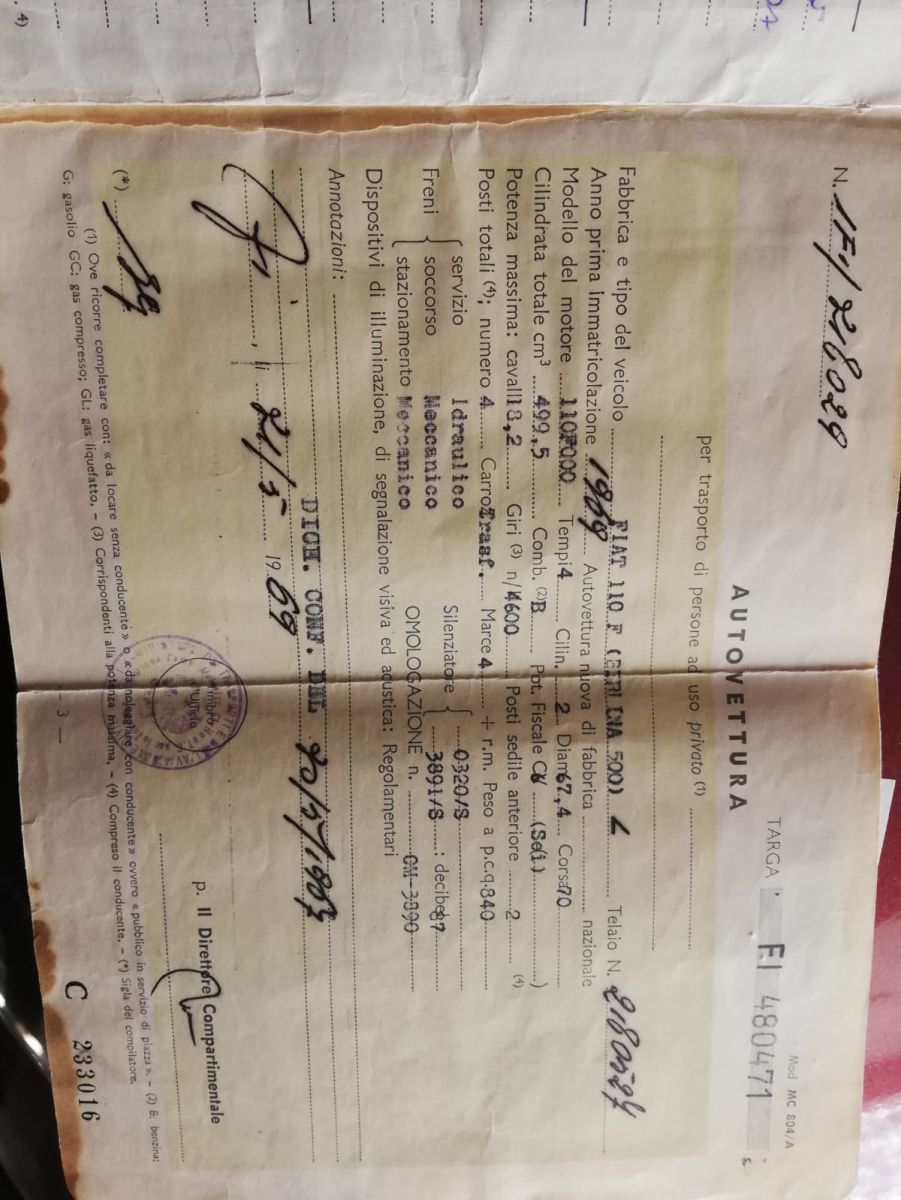 Mod MC 804/A
TARGA FI 480471
AUTOVETTURA
per trasporto di persone ad uso privato (1)
Fabbrica e tipo del veicolo FIAT 110 F (BERLINA 500) L Telaio N.
Anno prima immatricolazione 1969 Autovettura nuova di fabbrica nazionale
Modello del motore 110F000 Tempi 4 Cilin. 2 Diam 67,4 Corsa 70
Cilindrata totale cm³ 499,5 Comb. (2) B Pot. Fiscale CV (Sei)
Potenza massima: cavalli 18,2 Giri (3) n/ 4600 Posti sedile anteriore 2 (4)
Posti totali (4); numero 4 Carroz Trasf. Marce 4 + r.m. Peso a p.c. q. 840
Freni { servizio Idraulico
soccorso Meccanico
stazionamento Meccanico
Silenziatore { 0320/S
3891/S : decibel 87
OMOLOGAZIONE n. OM-3890
Dispositivi di illuminazione, di segnalazione visiva ed acustica: Regolamentari
Annotazioni:
DICH. CONF. DEL
, lì 21/5 19 69
timbro
p. Il Direttore Compartimentale
(*)
(1) Ove ricorre completare con: « da locare senza conducente » o « da noleggiare con conducente » ovvero « pubblico in servizio di piazza ». – (2) B: benzina;
G: gasolio GC: gas compresso; GL: gas liquefatto. – (3) Corrispondenti alla potenza massima. – (4) Compreso il conducente. – (*) Sigla del compilatore.
— 3 —
C 233016
4)